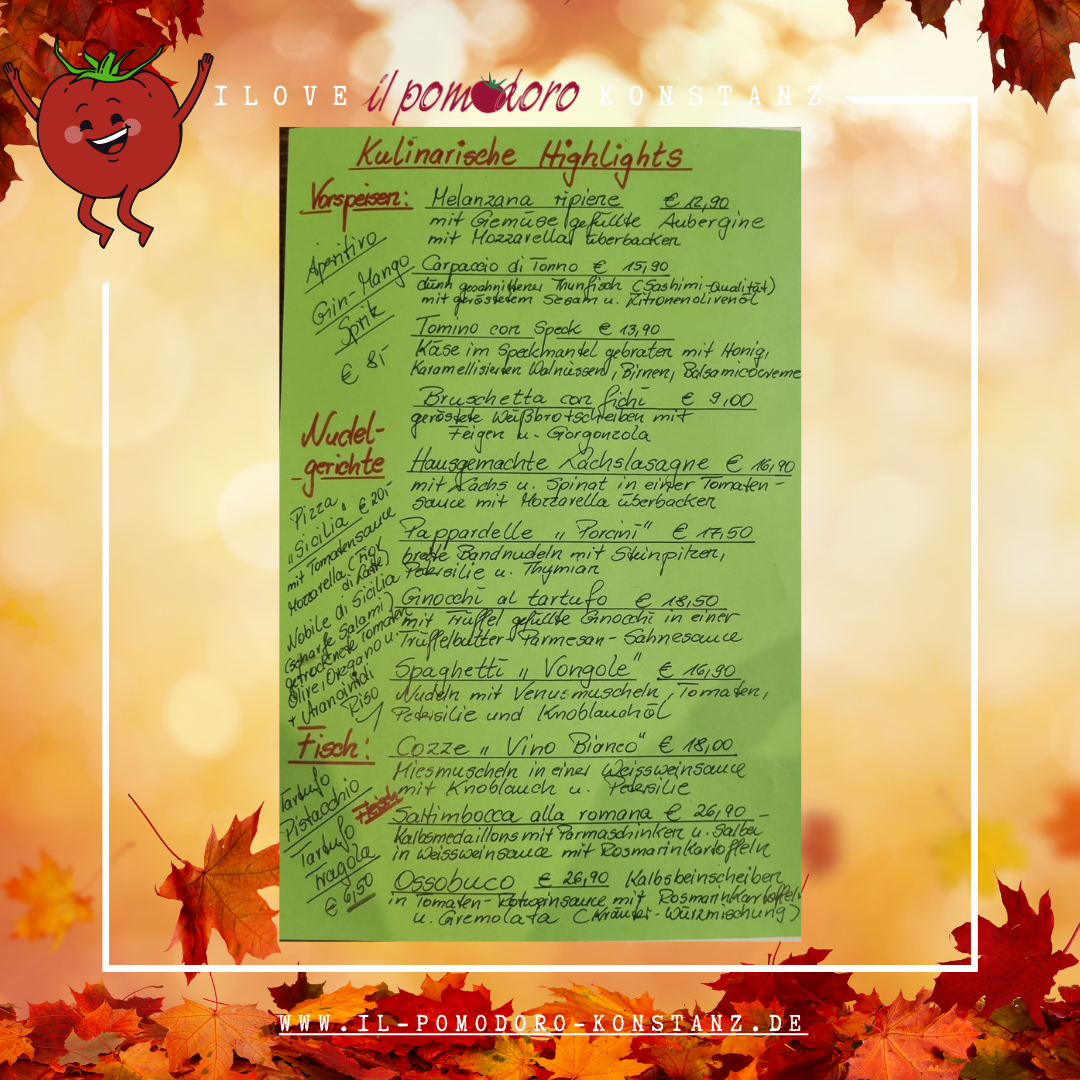 I LOVE il pomodoro KONSTANZ
Kulinarische Highlights
Vorspeisen:
Melanzana ripiene € 12,90
mit Gemüse gefüllte Aubergine
mit Mozzarella überbacken
Aperitivo
Gin-Mango
Sprik
€ 8,-
Carpaccio di Tonno € 15,90
dünn geschnittener Thunfisch (Sashimi-Qualität)
mit geröstetem Sesam u. Zitronenolivenöl
Tomino con Speck € 13,90
Käse im Speckmantel gebraten mit Honig,
Karamellisierten Walnüssen, Birnen, Balsamicocreme
Bruschetta con fichi € 9,00
geröstete Weißbrotscheiben mit
Feigen u. Gorgonzola
Nudel-
gerichte
Hausgemachte Lachslasagne € 16,90
mit Lachs u. Spinat in einer Tomaten-
sauce mit Mozzarella überbacken
Pappardelle „Porcini“ € 17,50
breite Bandnudeln mit Steinpilzen,
Petersilie u. Thymian
Ginocchi al tartufo € 18,50
mit Trüffel gefüllte Ginocchi in einer
Trüffelbutter-Parmesan-Sahnesauce
Spaghetti „Vongole“ € 16,90
Nudeln mit Venusmuscheln, Tomaten,
Petersilie und Knoblauchöl
Pizza
„Sicilia“ € 20,-
mit Tomatensauce
Mozzarella (Fior
di Latte)
Nobile di Sicilia
(scharfe Salami)
getrocknete Tomaten
Olive, Oregano u.
+ Arancini di
Riso
Fisch:
Cozze „Vino Bianco“ € 18,00
Miesmuscheln in einer Weissweinsauce
mit Knoblauch u. Petersilie
Fleisch
Saltimbocca alla romana € 26,90
Kalbsmedaillons mit Parmaschinken u. Salbei
in Weissweinsauce mit Rosmarinkartoffeln
Ossobuco € 26,90 Kalbsbeinscheiben
in Tomaten-Rotweinsauce mit Rosmarinkartoffeln
u. Gremolata (Kräuter-Würzmischung)
Tartufo
Pistacchio
Tartufo
Fragola
€ 6,50
WWW.IL-POMODORO-KONSTANZ.DE